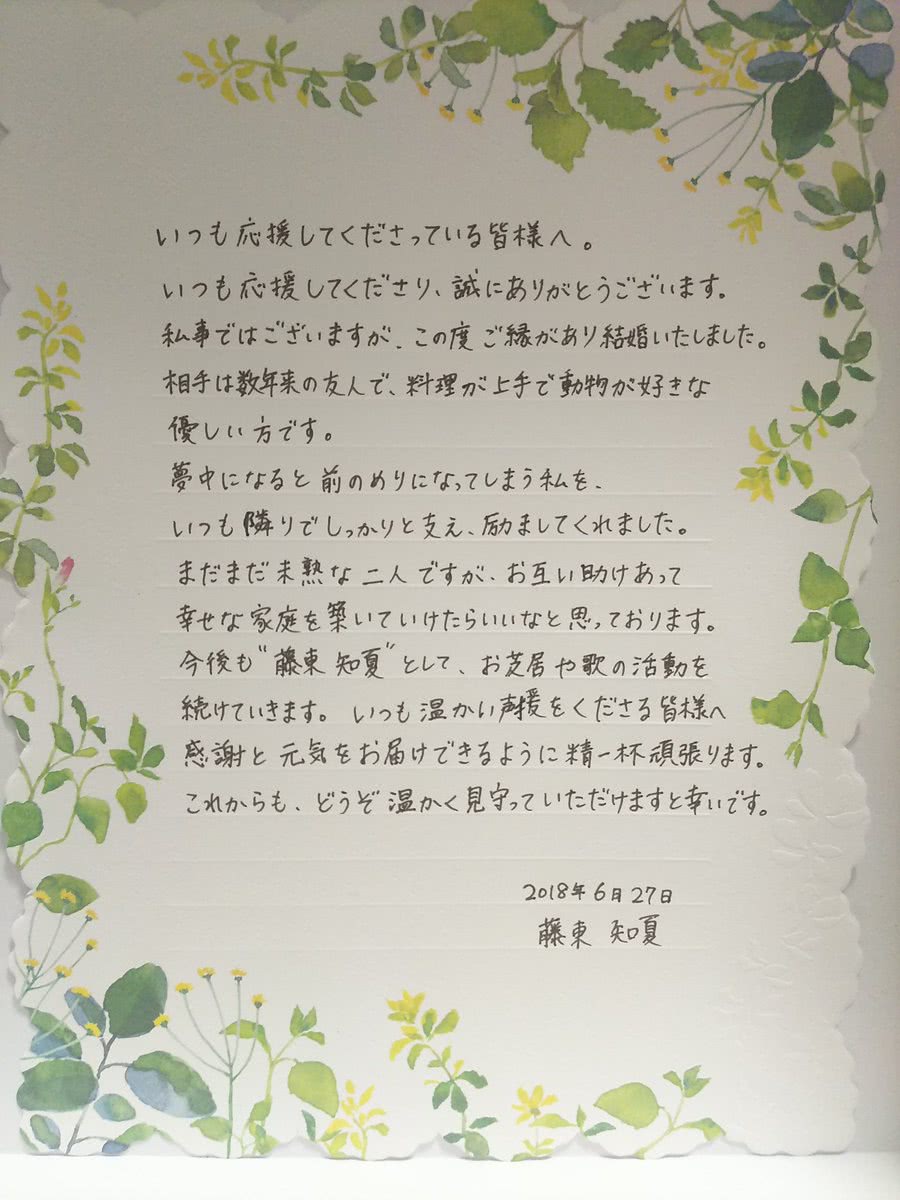 いつも応援してくださっている皆様へ。
いつも応援してくださり、誠にありがとうございます。
私事ではございますが、この度ご縁があり結婚いたしました。
相手は数年来の友人で、料理が上手で動物が好きな
優しい方です。
夢中になると前のめりになってしまう私を、
いつも隣りでしっかりと支え、励ましてくれました。
まだまだ未熟な二人ですが、お互い助けあって
幸せな家庭を築いていけたらいいなと思っております。
今後も"藤東 知夏"として、お芝居や歌の活動を
続けていきます。いつも温かい声援をくださる皆様へ
感謝と元気をお届けできるように精一杯頑張ります。
これからも、どうぞ温かく見守っていただけますと幸いです。
2018年6月27日
藤東 知夏